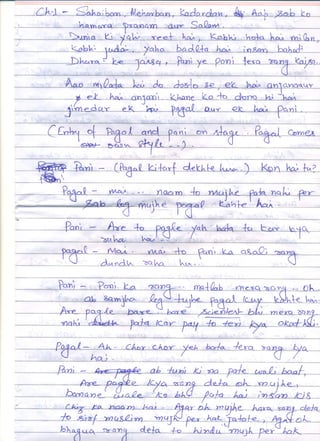 Ch-1 - Sahaiban, Meharban, Kadardan, Aaj Sab ko
hamara pranam aur Salam.
Dunia ki yahi reet hai, Kabhi hota hai milan,
Kabhi judai, yaha badlta hai insan bahati
Dhara ke jaisa, Pani ye pani tera rang kaisa.
Aao milata hai do dosto se, ek hai anjana sur
ek hai anjani khane ka to daro hi hai
jimedar ek hai pagal aur ek hai pani.
(Entry of Pagal and pani on stage. Pagal comes
own style...)
Pani - (Pagal ki tarf dekhte hue..) Kon hai tu?
Pagal - mai.... naam to mujhe pata nahi per
sab log mujhe pagal kahte hai.
Pani - Are to pagle yah bata tu kar kya
raha hai..
pagal - Mai.... mai to pani ka asali rang
dundh raha hu..
Pani - Pani ka rang... matlab mera rang. oh..
ab samjha log tujhe pagal kuy kahte hai.
Are pagle bare bare scientest bhi mera rang
nahi pata kar pay to teri kya okat hai.
Pagal - Ah. Chor chor yeh bata tera rang kya
hai.
Pani - ab tuni ki na pate wali baat,
Are pagle kya rang deta oh mujhe,
banane wale ko bhi pata hai insan kis
chij ka naam hai. Agar oh mujhe hara rang deta
to sirf muslim mujh per hak jatate, Agar oh
bhagua rang deta to hindu mujh per hak